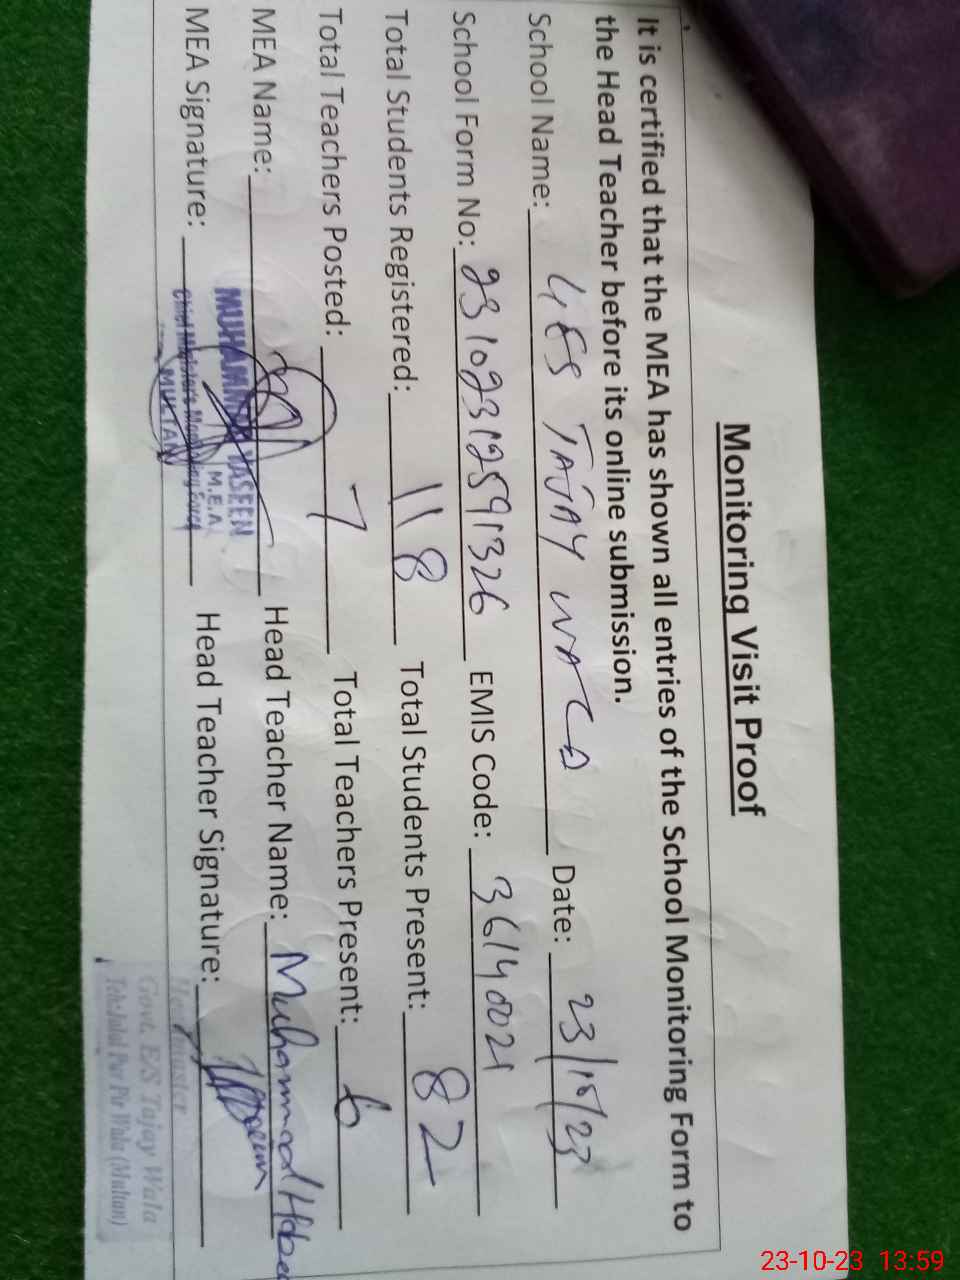 Monitoring Visit Proof
It is certified that the MEA has shown all entries of the School Monitoring Form to
the Head Teacher before its online submission.
School Name: GES TAJAY WALA Date: 23/10/23
School Form No: 231023125991326 EMIS Code: 36140021
Total Students Registered: 118 Total Students Present: 82
Total Teachers Posted: 7 Total Teachers Present: 6
MEA Name: Head Teacher Name: Muhammad
MEA Signature: Head Teacher Signature:
MUHAMMAD YASEEN
M.E.A
Chief Minister's Monitoring Force
MULTAN
Headmaster
Govt. E/S Tajay Wala
Teh: Jalal Pur Pir Wala (Multan)
23-10-23 13:59